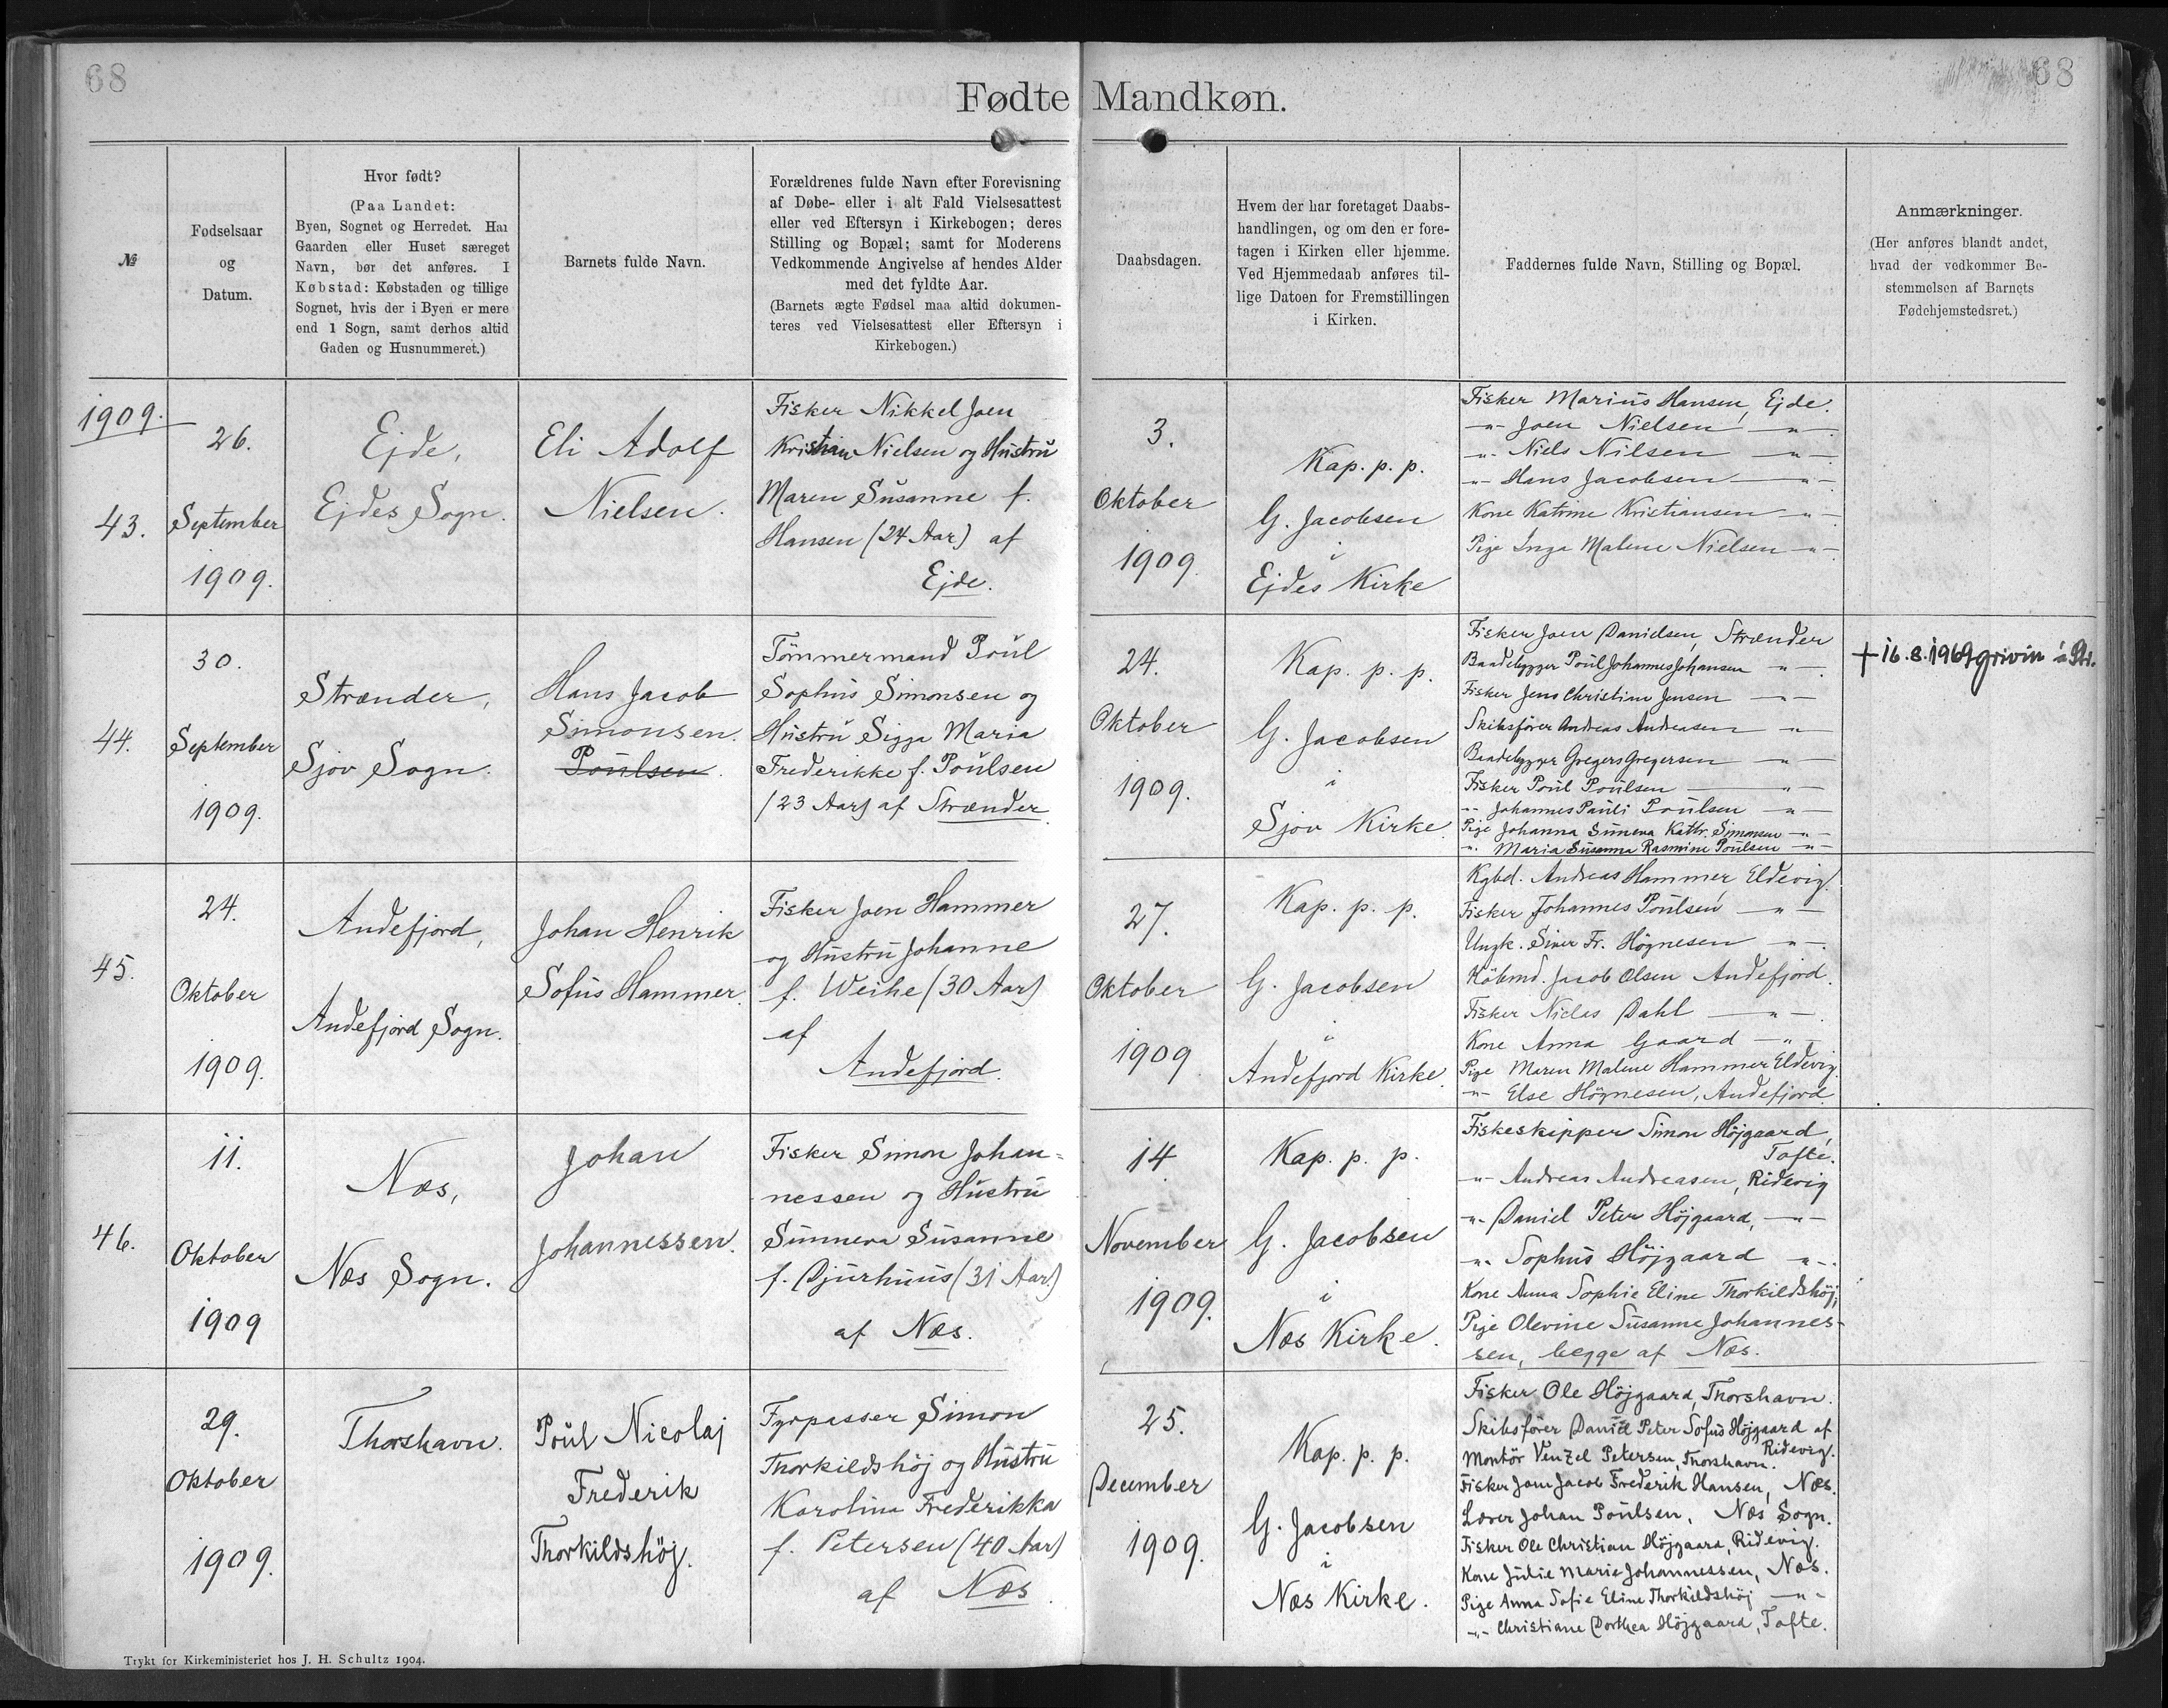 68
68
Fødte Mandkøn.
№
Fødselsaar
og
Datum.
Hvor født?
(Paa Landet:
Byen, Sognet og Herredet. Har
Gaarden eller Huset særeget
Navn, bør det anføres. I
Købstad: Købstaden og tillige
Sognet, hvis der i Byen er mere
end 1 Sogn, samt derhos altid
Gaden og Husnummeret.)
Barnets fulde Navn.
Forældrenes fulde Navn efter Forevisning
af Døbe- eller i alt Fald Vielsesattest
eller ved Eftersyn i Kirkebogen; deres
Stilling og Bopæl; samt for Moderens
Vedkommende Angivelse af hendes Alder
med det fyldte Aar.
(Barnets ægte Fødsel maa altid dokumen-
teres ved Vielsesattest eller Eftersyn i
Kirkebogen.)
Daabsdagen.
Hvem der har foretaget Daabs-
handlingen, og om den er fore-
tagen i Kirken eller hjemme.
Ved Hjemmedaab anføres til-
lige Datoen for Fremstillingen
i Kirken.
Faddernes fulde Navn, Stilling og Bopæl.
Anmærkninger.
(Her anføres blandt andet,
hvad der vedkommer Be-
stemmelsen af Barnets
Fødehjemstedsret.)
1909.
43.
26.
September
1909.
Ejde,
Ejdes Sogn.
Eli Adolf
Nielsen.
Fisker Nikkel Joen
Kristian Nielsen og Hustru
Maren Susanne f.
Hansen (24 Aar) af
Ejde.
3.
Oktober
1909.
Kap. p. p.
G. Jacobsen
i
Ejdes Kirke
Fisker Marius Hansen, Ejde.
-"- Joen Nielsen, -"-
-"- Niels Nilsen -"-
-"- Hans Jacobsen -"-
Kone Katrine Kristiansen -"-
Pige Inga Malene Nielsen -"-
44.
30.
September
1909.
Strænder,
Sjov Sogn.
Hans Jacob
Simonsen.
Poulsen.
Tømmermand Poul
Sophus Simonsen og
Hustru Sigga Maria
Frederikke f. Poulsen
(23 Aar) af Strænder.
24.
Oktober
1909.
Kap. p. p.
G. Jacobsen
i
Sjov Kirke.
Fisker Joen Danielsen, Strænder
Baadebygger Poul Johannes Johansen -"-
Fisker Jens Christian Jensen -"-
Skibsfører Andreas Andreasen -"-
Baadebygger Gregers Gregersen -"-
Fisker Poul Poulsen -"-
-"- Johannes Pauli Poulsen -"-
Pige Johanna Sunneva Kathr. Simonsen -"-
-"- Maria Susanna Rasmine Poulsen -"-
+ 16.8.1969 grivin á Str.
45.
24.
Oktober
1909.
Andefjord,
Andefjord Sogn.
Johan Henrik
Sofus Hammer.
Fisker Joen Hammer
og Hustru Johanne
f. Weihe (30 Aar)
af
Andefjord.
27.
Oktober
1909
Kap. p. p.
G. Jacobsen
i
Andefjord Kirke.
Kgbd. Andreas Hammer, Eldevig.
Fisker Johannes Poulsen, -"-
Ungk. Siver Fr. Högnesen -"-.
Köbmd. Jacob Olsen Andefjord.
Fisker Niclas Dahl -"-.
Kone Anna Gaard -"-
Pige Maren Malene Hammer Eldevig.
-"- Else Högnesen, Andefjord.
46.
11.
Oktober
1909
Næs,
Næs Sogn.
Johan
Johannessen.
Fisker Simon Johan=
nessen og Hustru
Sunneva Susanne
f. Djurhuus (31 Aar)
af Næs.
14
November
1909.
Kap. p. p.
G. Jacobsen
i
Næs Kirke.
Fiskeskipper Simon Höjgaard,
Tofte.
-"- Andreas Andreasen, Ridevig
-"- Daniel Peter Höjgaard, -"-
-"- Sophus Höjgaard -"-.
Kone Anna Sophie Eline Thorkildshöj,
Pige Olevine Susanne Johannes-
sen, begge af Næs.
29.
Oktober
1909.
Thorshavn.
Poul Nicolaj
Frederik
Thorkildshöj.
Fyrpasser Simon
Thorkildshöj og Hustru
Karolina Frederikka
f. Petersen (40 Aar)
af Næs.
25.
December
1909.
Kap. p. p.
G. Jacobsen
i
Næs Kirke.
Fisker Ole Höjgaard, Thorshavn.
Skibsförer Daniel Peter Sofus Höjgaard af
Ridevig.
Montör Venzel Petersen, Thorshavn.
Fisker Joen Jacob Frederik Hansen, Næs.
Lærer Johan Poulsen, Næs Sogn.
Fisker Ole Christian Höjgaard, Ridevig.
Kone Julie Marie Johannessen, Næs.
Pige Anna Sofie Eline Thorkildshöj -"-
-"- Christiane Dorthea Höjgaard, Tofte.
Trykt for Kirkeministeriet hos J. H. Schultz 1904.